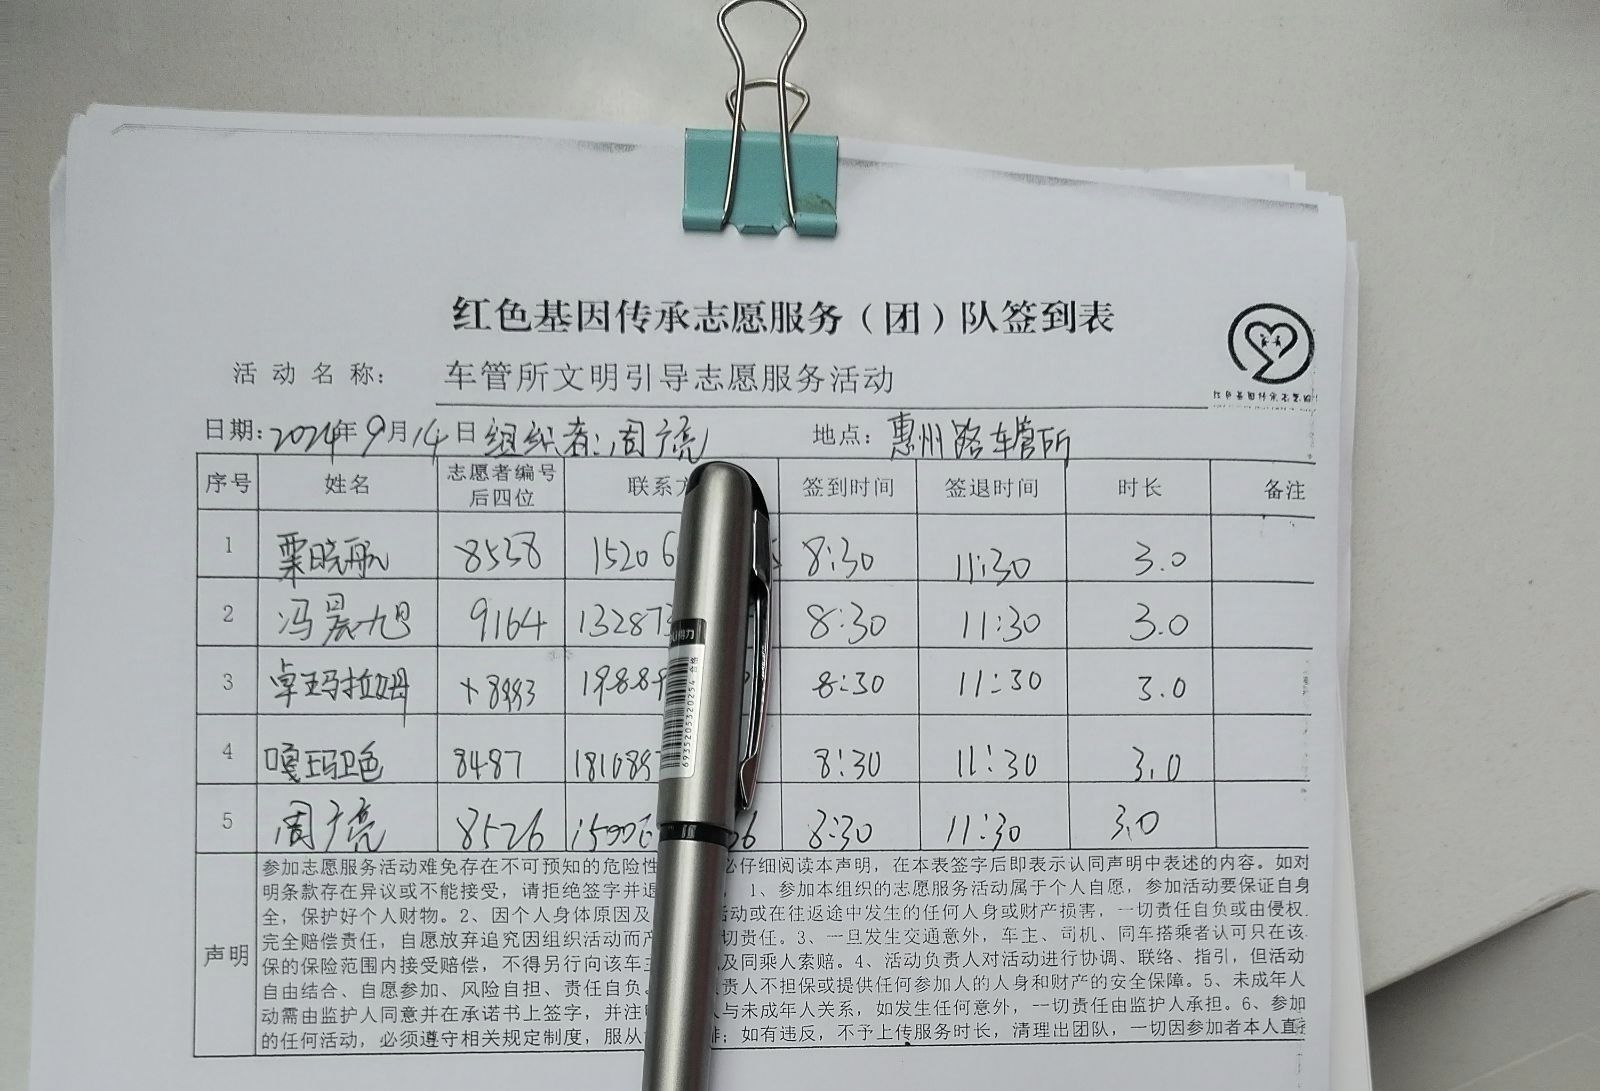 红色基因传承志愿服务（团）队签到表
活动名称： 车管所文明引导志愿服务活动
日期：2024年9月14日 组织者：周广亮 地点：惠州路车管所
序号 姓名 志愿者编号后四位 联系方 签到时间 签退时间 时长 备注
1 栗晓航 8538 15206 8:30 11:30 3.0
2 冯晨旭 9164 132873 8:30 11:30 3.0
3 卓玛拉姆 8:30 11:30 3.0
4 嘎玛卫色 8487 8:30 11:30 3.0
5 周广亮 8526 06 8:30 11:30 3.0
声明
参加志愿服务活动难免存在不可预知的危险性 必仔细阅读本声明，在本表签字后即表示认同声明中表述的内容。如对
明条款存在异议或不能接受，请拒绝签字并退 ，1、参加本组织的志愿服务活动属于个人自愿，参加活动要保证自身
全，保护好个人财物。2、因个人身体原因及 活动或在往返途中发生的任何人身或财产损害，一切责任自负或由侵权
完全赔偿责任，自愿放弃追究因组织活动而产 切责任。3、一旦发生交通意外，车主、司机、同车搭乘者认可只在该
保的保险范围内接受赔偿，不得另行向该车主 及同乘人索赔。4、活动负责人对活动进行协调、联络、指引，但活动
自由结合、自愿参加、风险自担、责任自负。 责人不担保或提供任何参加人的人身和财产的安全保障。5、未成年人
动需由监护人同意并在承诺书上签字，并注明 人与未成年人关系，如发生任何意外，一切责任由监护人承担。6、参加
的任何活动，必须遵守相关规定制度，服从 排；如有违反，不予上传服务时长，清理出团队，一切因参加者本人直接
得力
合格
6935205320254